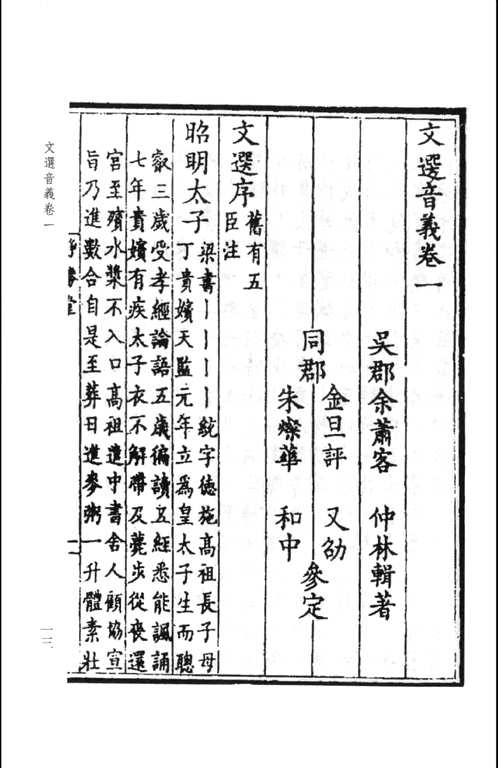 文選音義卷一
吳郡余蕭客　仲林輯著
同郡
金旦評　又劭
朱燦華　和中
參定
文選序
舊有五
臣注
昭明太子
梁書｜｜｜｜｜統字德施高祖長子母
丁貴嬪天監元年立爲皇太子生而聰
叡三歲受孝經論語五歲徧讀五經悉能諷誦
七年貴嬪有疾太子衣不解帶及薨步從喪還
宮至殯水漿不入口高祖遣中書舍人顧協宣
旨乃進數合自是至葬日進麥粥一升體素壯
文選音義卷一
一三